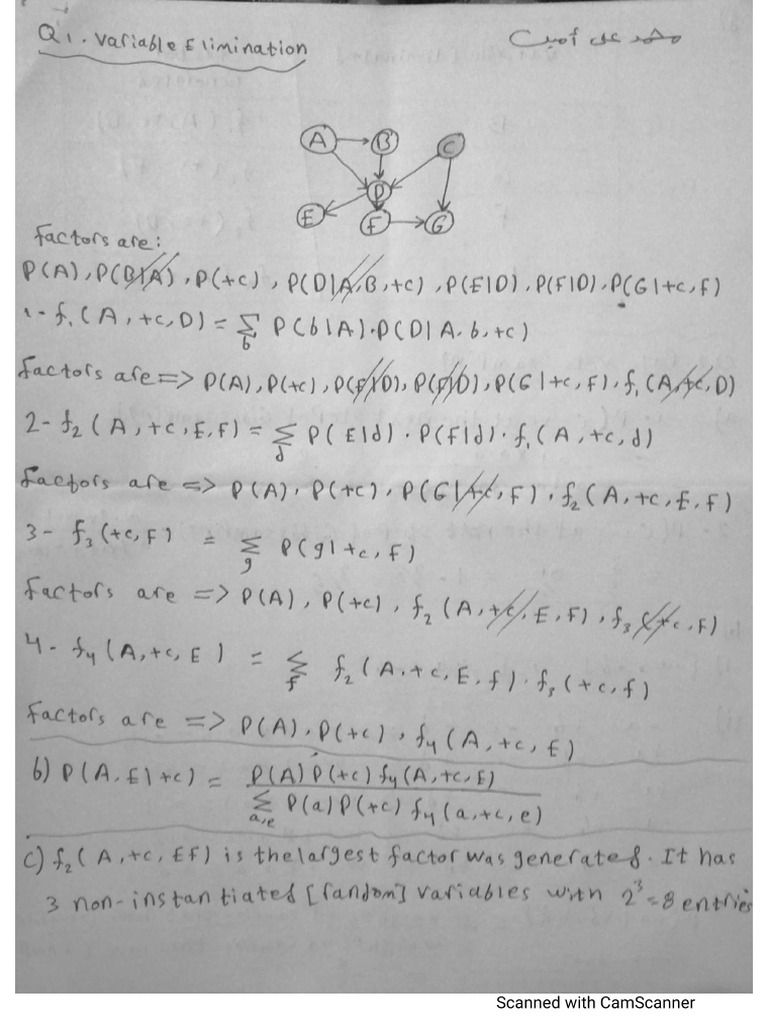 Q1. Variable Elimination
A
B
C
D
E
F
G
Factors are:
P(A), P(B|A), P(+c), P(D|A,B,+c), P(E|D), P(F|D), P(G|+c,f)
1- f₁(A,+c,D) = Σ_b P(b|A).P(D|A,b,+c)
Factors are => P(A), P(+c), P(E|D), P(F|D), P(G|+c,F), f₁(A,+c,D)
2- f₂(A,+c,E,F) = Σ_d P(E|d).P(F|d).f₁(A,+c,d)
Factors are => P(A), P(+c), P(G|+c,F), f₂(A,+c,E,F)
3- f₃(+c,F) = Σ_g P(g|+c,F)
Factors are => P(A), P(+c), f₂(A,+c,E,F), f₃(+c,F)
4- f₄(A,+c,E) = Σ_f f₂(A,+c,E,f).f₃(+c,f)
Factors are => P(A), P(+c), f₄(A,+c,E)
b) P(A,E|+c) = P(A)P(+c) f₄(A,+c,E) / Σ_a,e P(a)P(+c) f₄(a,+c,e)
C) f₂(A,+c,E,f) is the largest factor was generated. It has
3 non-instantiated [random] variables with 2³=8 entries
Scanned with CamScanner